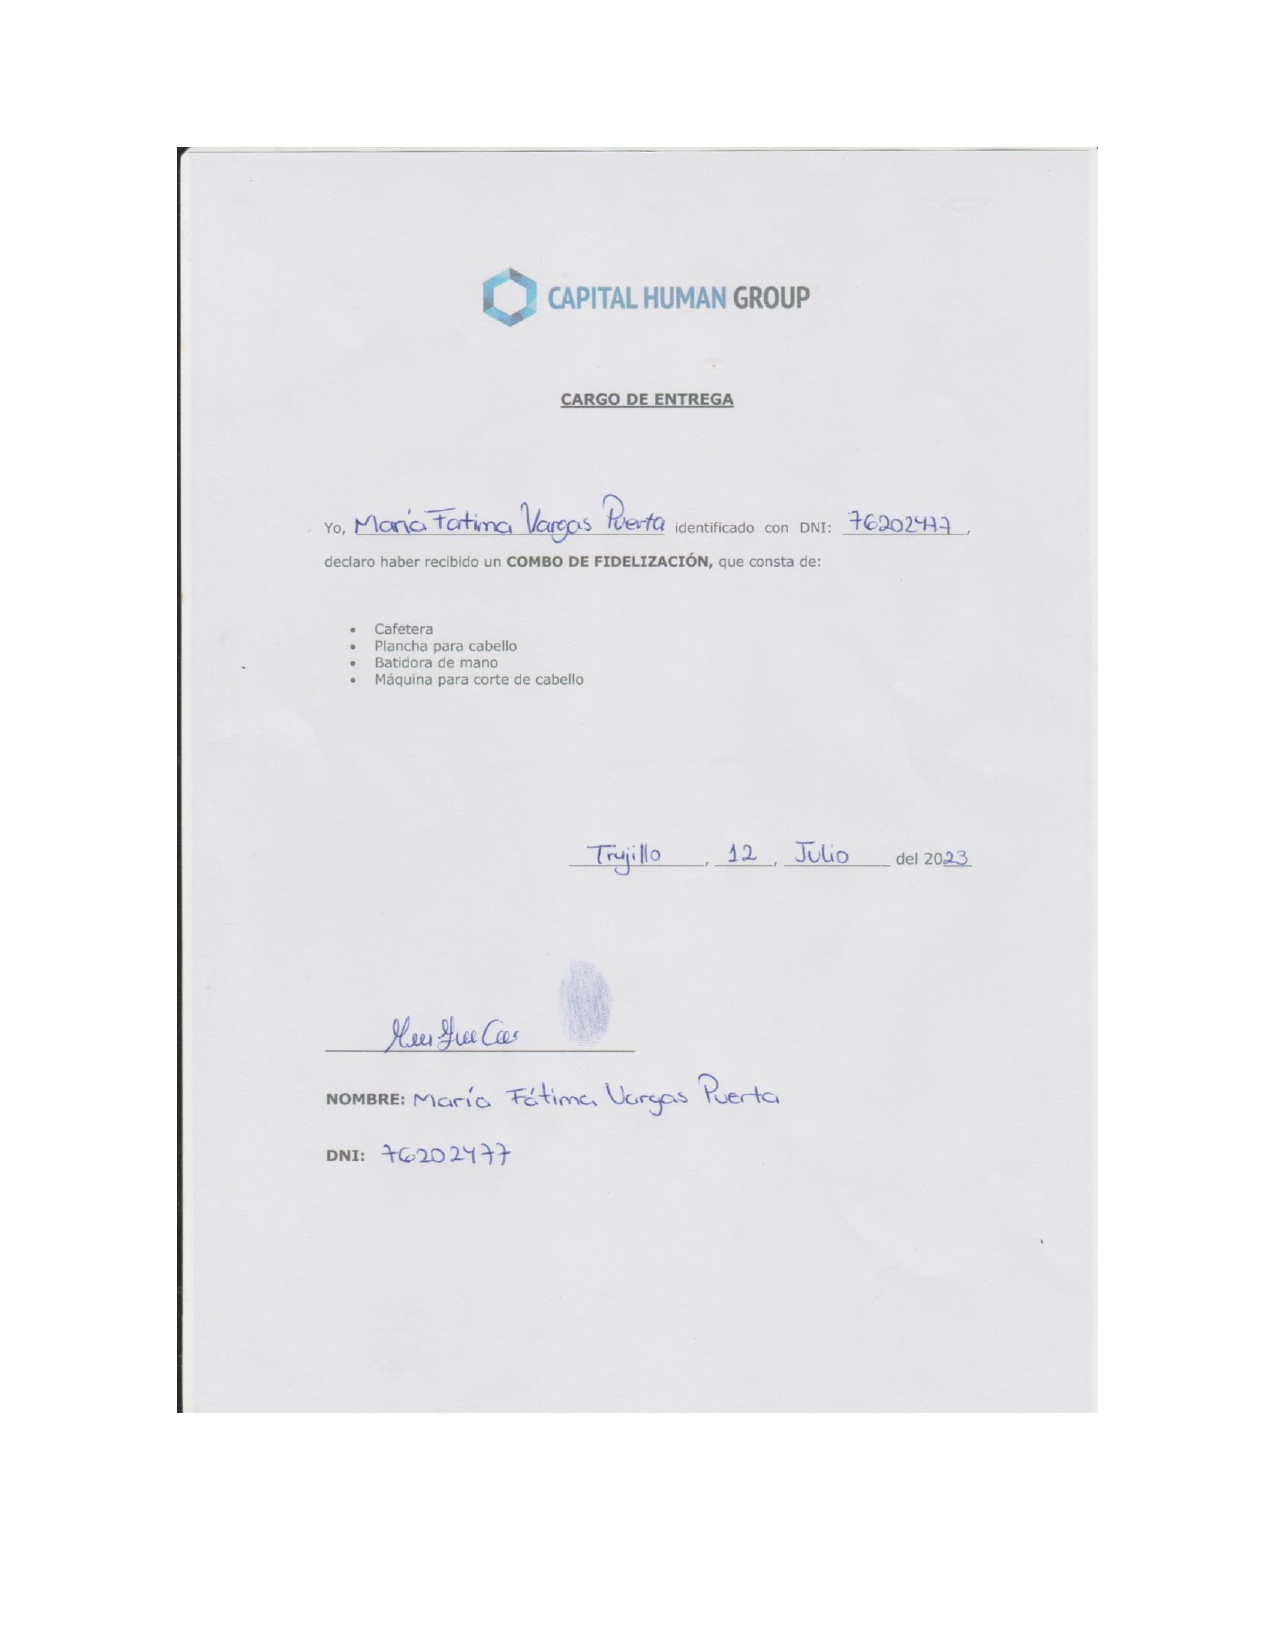 CAPITAL HUMAN GROUP
CARGO DE ENTREGA
Yo, María Fatima Vargas Puerta identificado con DNI: 76202477,
declaro haber recibido un COMBO DE FIDELIZACIÓN, que consta de:
• Cafetera
• Plancha para cabello
• Batidora de mano
• Máquina para corte de cabello
Trujillo, 12, Julio del 2023
NOMBRE: María Fátima Vargas Puerta
DNI: 76202477